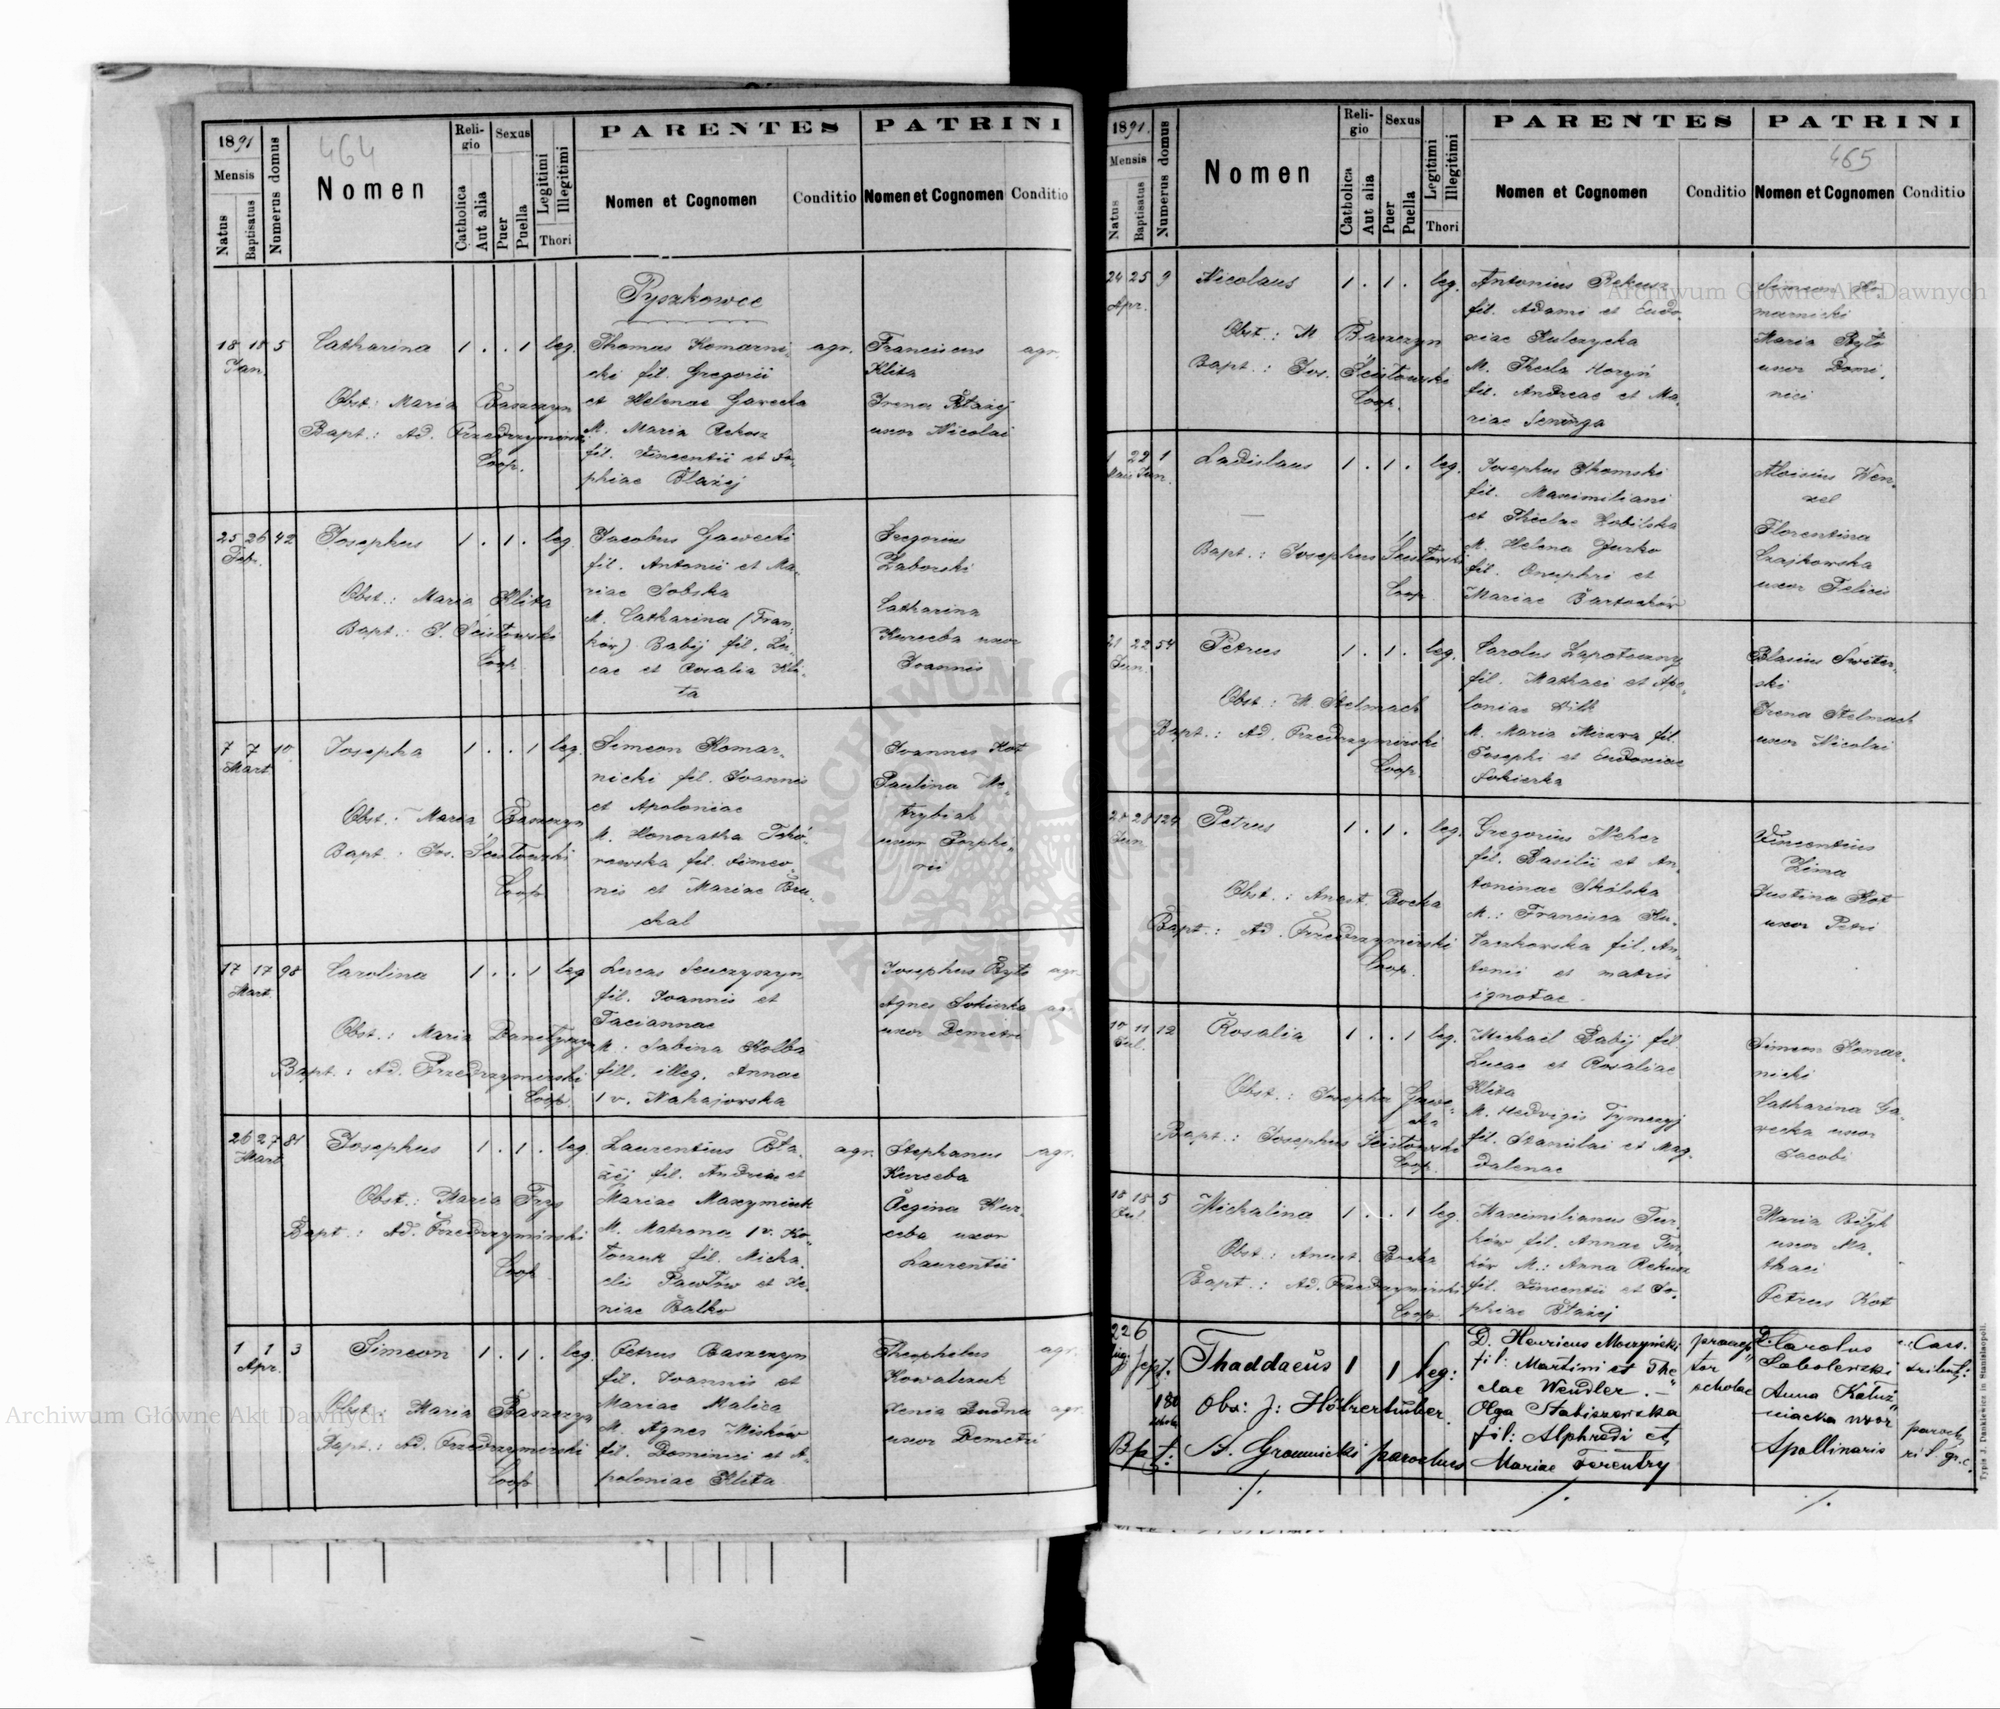 1891
Mensis
Natus
Baptisatus
Numerus domus
464
Nomen
Religio
Catholica
Aut alia
Sexus
Puer
Puella
Legitimi
Illegitimi
Thori
PARENTES
Nomen et Cognomen
Conditio
PATRINI
Nomen et Cognomen
Conditio
Pyszkowce
18 18 5 Catharina 1 . . 1 leg.
Jan.
Obst.: Maria Baszczyn
Bapt.: Ad. Przedrzymirski
Coop.
Thomas Komarni-
cki fil. Gregorii
et Helenae Gawecka
M. Maria Rekosz
fil. Vincentii et So-
phiae Błażej
agr.
Franciscus
Klita
Irena Błażej
uxor Nicolai
agr.
25 26 42 Josephus 1 . 1 . leg.
Febr.
Obst.: Maria Klita
Bapt.: J. Ścisłowski
Coop.
Jacobus Gawecki
fil. Antonii et Ma-
riae Sobska
M. Catharina (Fran-
ków) Babij fil. Lu-
cae et Rosalia Kli-
ta
Gregorius
Zaborski
Catharina
Kureeba uxor
Joannis
7 7 10 Josepha 1 . . 1 leg.
Mart.
Obst.: Maria Baszczyn
Bapt.: Jos. Ścisłowski
Coop.
Simeon Komar-
nicki fil. Joannis
et Apoloniae
M. Honoratha
fil. Simeo-
nis et Mariae Bru-
chal
Joannes Kot
Paulina
uxor Porphi-
rii
17 17 98 Carolina 1 . . 1 leg.
Mart.
Obst.: Maria
Bapt.: Ad. Przedrzymirski
Coop.
Lucas
fil. Joannis et
Taciannae
M. Sabina Kolba
fill. illeg. Annae
1 v. Nahajowska
Josephus Byto agr.
Agnes Sokierka agr.
uxor Demetri
26 27 81 Josephus 1 . 1 . leg.
Mart.
Obst.: Maria Frys
Bapt.: Ad. Przedrzymirski
Coop.
Laurentius Bła-
żej fil. Andreae et
Mariae Maxymiuk
M. Matrona 1 v. Ko-
fil. Micha-
elis Pawłów et Xe-
niae Balko
agr.
Stephanus
Kureeba
Regina Kur-
eeba uxor
Laurentii
agr.
1 1 3 Simeon 1 . 1 . leg.
Apr.
Obst.: Maria Baszczyn
Bapt.: Ad. Przedrzymirski
Coop.
Petrus Baszczyn
fil. Joannis et
Mariae Malica
M. Agnes Miskow
fil. Dominici et A-
poloniae Klita
Theophilus
Kowalczuk
Xenia Dudna
uxor Demetri
agr.
agr.
1891.
Mensis
Natus
Baptisatus
Numerus domus
Nomen
Religio
Catholica
Aut alia
Sexus
Puer
Puella
Legitimi
Illegitimi
Thori
PARENTES
Nomen et Cognomen
Conditio
PATRINI
465
Nomen et Cognomen
Conditio
24 25 9 Nicolaus 1 . 1 . leg.
Apr.
Obst.: M Baszczyn
Bapt.: Jos. Ścisłowski
Coop.
Antonius Rekusz
fil. Adami et Eudo-
xiae Kulczycka
M. Thecla Horyń
fil. Andreae et Ma-
riae Seninga
Simeon Ko-
marnicki
Maria Byto
uxor Domi-
nici
1 22 1 Ladislaus 1 . 1 . leg.
Maii Jun.
Bapt.: Josephus Ścisłowski
Coop.
Josephus Thomski
fil. Maximiliani
et Theclae
M. Helena Jurko
fil. Onuphri et
Mariae Bartochów
Aloisius Wen-
zel
Florentina
Czajkowska
uxor Felicis
21 22 54 Petrus 1 . 1 . leg.
Jun.
Obst.: M. Stelmach
Bapt.: Ad. Przedrzymirski
Coop.
Carolus Zapotoczny
fil. Mathaei et Apo-
loniae Wilk
M. Maria Mirzwa fil.
Josephi et Eudoxiae
Sokierka
Blasius Switer-
ski
Irena Stelmach
uxor Nicolai
28 28 124 Petrus 1 . 1 . leg.
Jun.
Obst.: Anast. Bocka
Bapt.: Ad. Przedrzymirski
Coop.
Gregorius Weher
fil. Basilii et An-
toninae Skólska
M.: Francisca
fil. An-
tonii et matris
ignotae.
Vincentius
Zima
Justina Kot
uxor Petri
10 11 12 Rosalia 1 . . 1 leg.
Jul.
Obst.: Josepha Gawe-
cka
Bapt.: Josephus Ścisłowski
Coop.
Michael Babij fil.
Lucae et Rosaliae
Klita
M. Hedvigis Tymczyj
fil. Stanislai et Mag-
dalenae
Simeon Komar-
nicki
Catharina Ga-
wecka uxor
Jacobi
18 18 5 Michalina 1 . . 1 leg.
Jul.
Obst.: Anast. Bocka
Bapt.: Ad. Przedrzymirski
Coop.
Maximilianus Tur-
ków fil. Annae Tur-
ków M.: Anna Rekusz
fil. Vincentii et So-
phiae Błażej
Maria Biłyk
uxor Ma-
thaei
Petrus Kot
22 6 Thaddaeus 1 1 leg:
Aug. Sept.
180
Obs: J: Hölzerhuber.
Bpt: St. Gromnicki parochus
D. Henricus Moczyński
fil: Martini et The-
clae Wendler. —
Olga Stabiszewska
fil: Alphredi et
Mariae Torentry
praecep-
tor
scholae
D. Carolus
Sobolewski
Anna Katuż-
niacka uxor
Apollinaris
Cass.
parochi
ri t. gr. c.
./. ./. ./.
Typis J. Dankiewicz in Stanislaopoli.
Archiwum Główne Akt Dawnych
Archiwum Główne Akt Dawnych